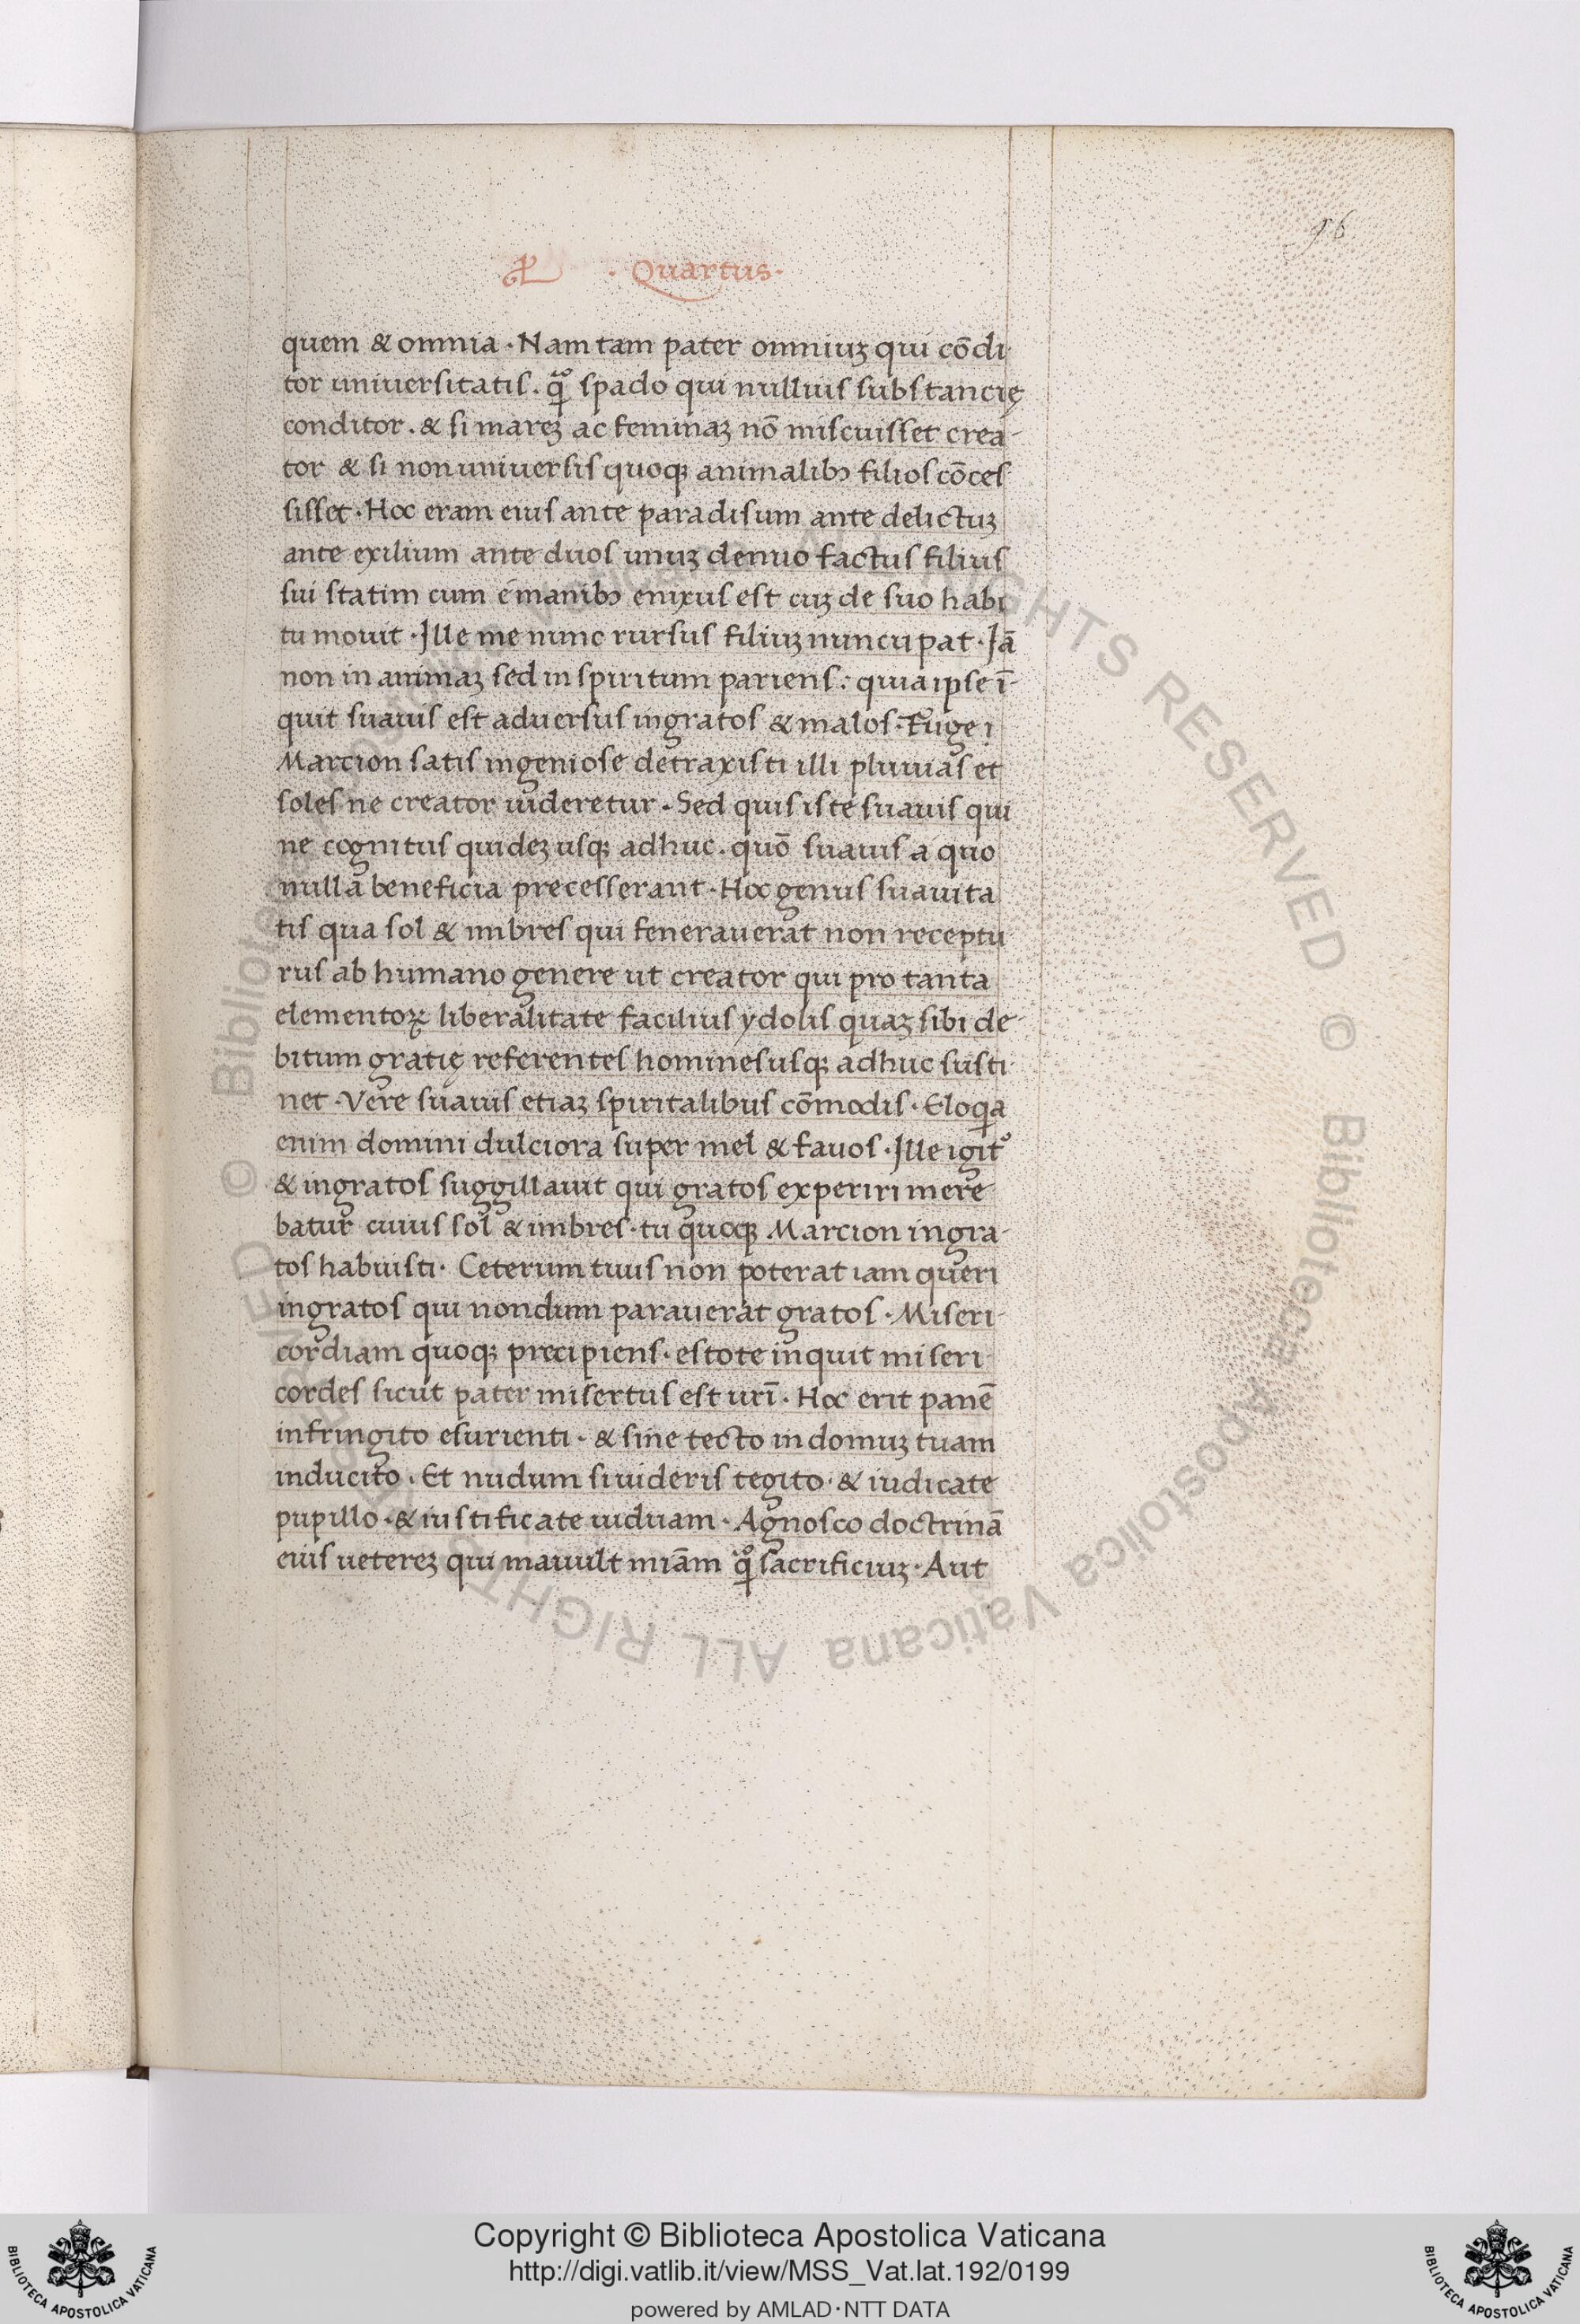 96
· Quartus ·
quem & omnia · Nam tam pater omniuꝫ qui cōdi
tor uniuersitatis . spado qui nullius substancię
conditor . & si mareꝫ ac feminaꝫ nō miscuisset crea-
tor & si non uniuersis quoqꝫ animalibꝫ filios cōces
sisset · Hoc eram eius ante paradisum ante delictuꝫ
ante exilium ante duos unuꝫ denuo factus filius
sui statim cum e manibꝫ enixus est cuꝫ de suo habi
tu mouit · Ille me nunc rursus filiuꝫ nuncupat · Iā
non in animaꝫ sed in spiritum pariens : quia ipse ī-
quit suauis est aduersus ingratos & malos · Euge ;
Marcion satis ingeniose detraxisti illi pluuias et
soles ne creator uideretur . Sed quis iste suauis qui
ne cognitus quideꝫ usqꝫ adhuc . quō suauis a quo
nulla beneficia precesserant · Hoc genus suauita
tis qua sol & imbres qui fenerauerat non receptu
rus ab humano genere ut creator qui pro tanta
elementoꝝ liberalitate facilius ydolis quaꝫ sibi de
bitum gratię referentes homines usqꝫ adhuc susti
net · Vere suauis etiaꝫ spiritalibus cōmodis · Eloqia
enim domini dulciora super mel & fauos · Ille igit᷑
& ingratos suggillauit qui gratos experiri mere
batur cuius sol & imbres · tu quoqꝫ Marcion ingra-
tos habuisti · Ceterum tuus non poterat iam queri
ingratos qui nondum parauerat gratos · Miseri-
cordiam quoqꝫ precipiens · estote inquit miseri
cordes sicut pater misertus est urī · Hoc erit panē
infringito esurienti · & sine tecto in domuꝫ tuam
inducito . Et nudum si uideris tegito · & iudicate
pupillo · & iustificate uiduam · Agnosco doctrinā
eius uetereꝫ qui mauult miām sacrificiuꝫ · Aut
© Biblioteca Apostolica Vaticana ALL RIGHTS RESERVED © Biblioteca Apostolica Vaticana ALL RIGHTS RESERVED
Copyright © Biblioteca Apostolica Vaticana
http://digi.vatlib.it/view/MSS_Vat.lat.192/0199
powered by AMLAD·NTT DATA
BIBLIOTECA APOSTOLICA VATICANA
BIBLIOTECA APOSTOLICA VATICANA